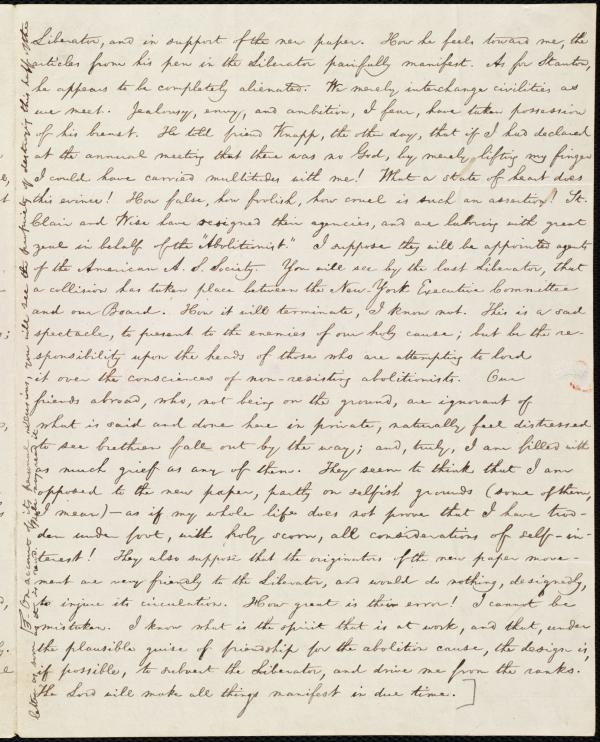 Liberator, and in support of the new paper. How he feels toward me, the
articles from his pen in the Liberator painfully manifest. As for Stanton,
he appears to be completely alienated. We merely interchange civilities as
we meet. Jealousy, envy, and ambition, I fear, have taken possession
of his breast. He told friend Knapp, the other day, that if I had declared
at the annual meeting that there was no God, by merely lifting my finger
I could have carried multitudes with me! What a state of heart does
this evince! How false, how foolish, how cruel is such an assertion! St.
Clair and Wise have resigned their agencies, and are laboring with great
zeal in behalf of the "Abolitionist." I suppose they will be appointed agents
of the American A. S. Society. You will see by the last Liberator, that
a collision has taken place between the New-York Executive Committee
and our Board. How it will terminate, I know not. This is a sad
spectacle, to present to the enemies of our holy cause; but be the re-
sponsibility upon the heads of those who are attempting to lord
it over the consciences of non-resisting abolitionists. Our
friends abroad, who, not being on the ground, are ignorant of
what is said and done here in private, naturally feel distressed
to see brethren fall out by the way; and, truly, I am filled with
as much grief as any of them. They seem to think that I am
opposed to the new paper, partly on selfish grounds (some of them,
I mean)—as if my whole life does not prove that I have trod-
den under foot, with holy scorn, all considerations of self-in-
terest! They also suppose that the originators of the new paper move-
ment are very friendly to the Liberator, and would do nothing, designedly,
to injure its circulation. How great is their error! I cannot be
mistaken. I know what is the spirit that is at work, and that, under
the plausible guise of friendship for the abolition cause, the design is,
if possible, to subvert the Liberator, and drive me from the ranks.
The Lord will make all things manifest in due time.]
On account of its personal allusions, you will see the propriety of destroying this part of the
letter as soon as it is read.